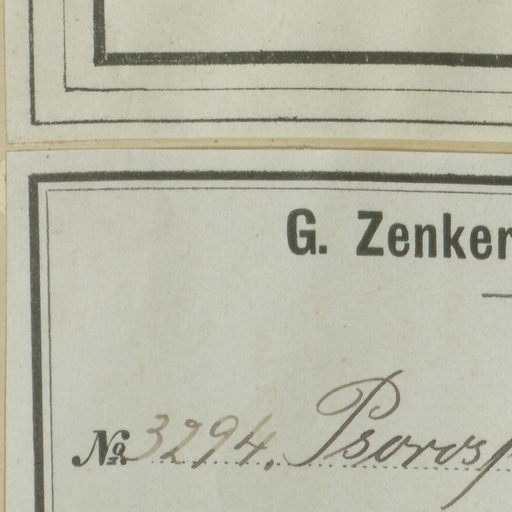 G. Zenker
№ 3294. Psorosp